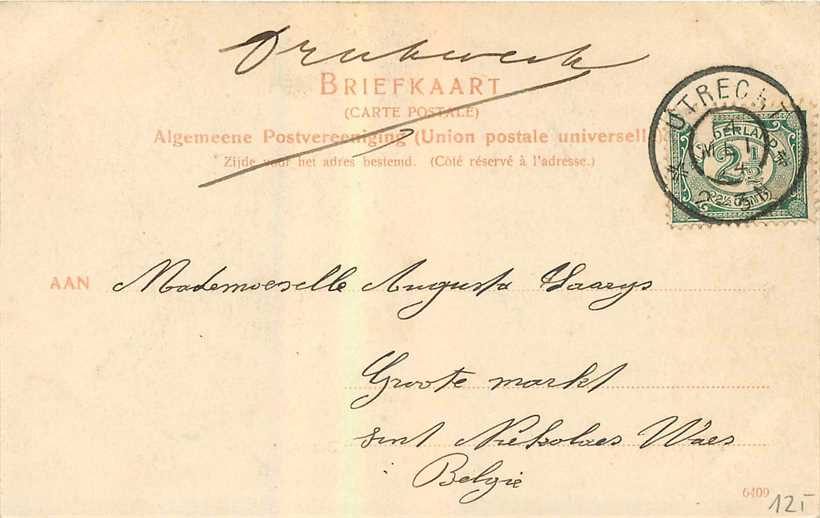 Drukwerk
BRIEFKAART
(CARTE POSTALE)
Algemeene Postvereeniging (Union postale universelle)
Zijde voor het adres bestemd. (Côté réservé à l'adresse.)
UTRECHT
DERLAND
2½
AAN Mademoeselle Augusta Saarys
Groote markt
sint Niekolaes Waes
Belgie
6409
12-